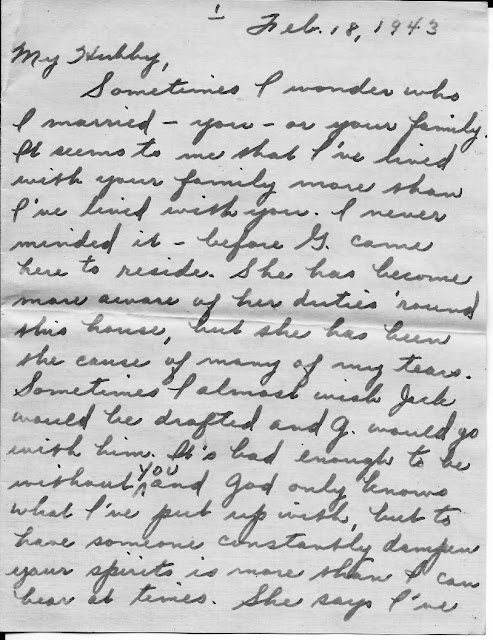 1
Feb. 18, 1943
My Hubby,
Sometimes I wonder who
I married - you - or your family.
It seems to me that I've lived
with your family more than
I've lived with you. I never
minded it - before G. came
here to reside. She has become
more aware of her duties 'round
this house, but she has been
the cause of many of my tears.
Sometimes I almost wish Jack
would be drafted and G. would go
with him. It's bad enough to be
without you and God only knows
what I've put up with, but to
have someone constantly dampen
your spirits is more than I can
bear at times. She says I've